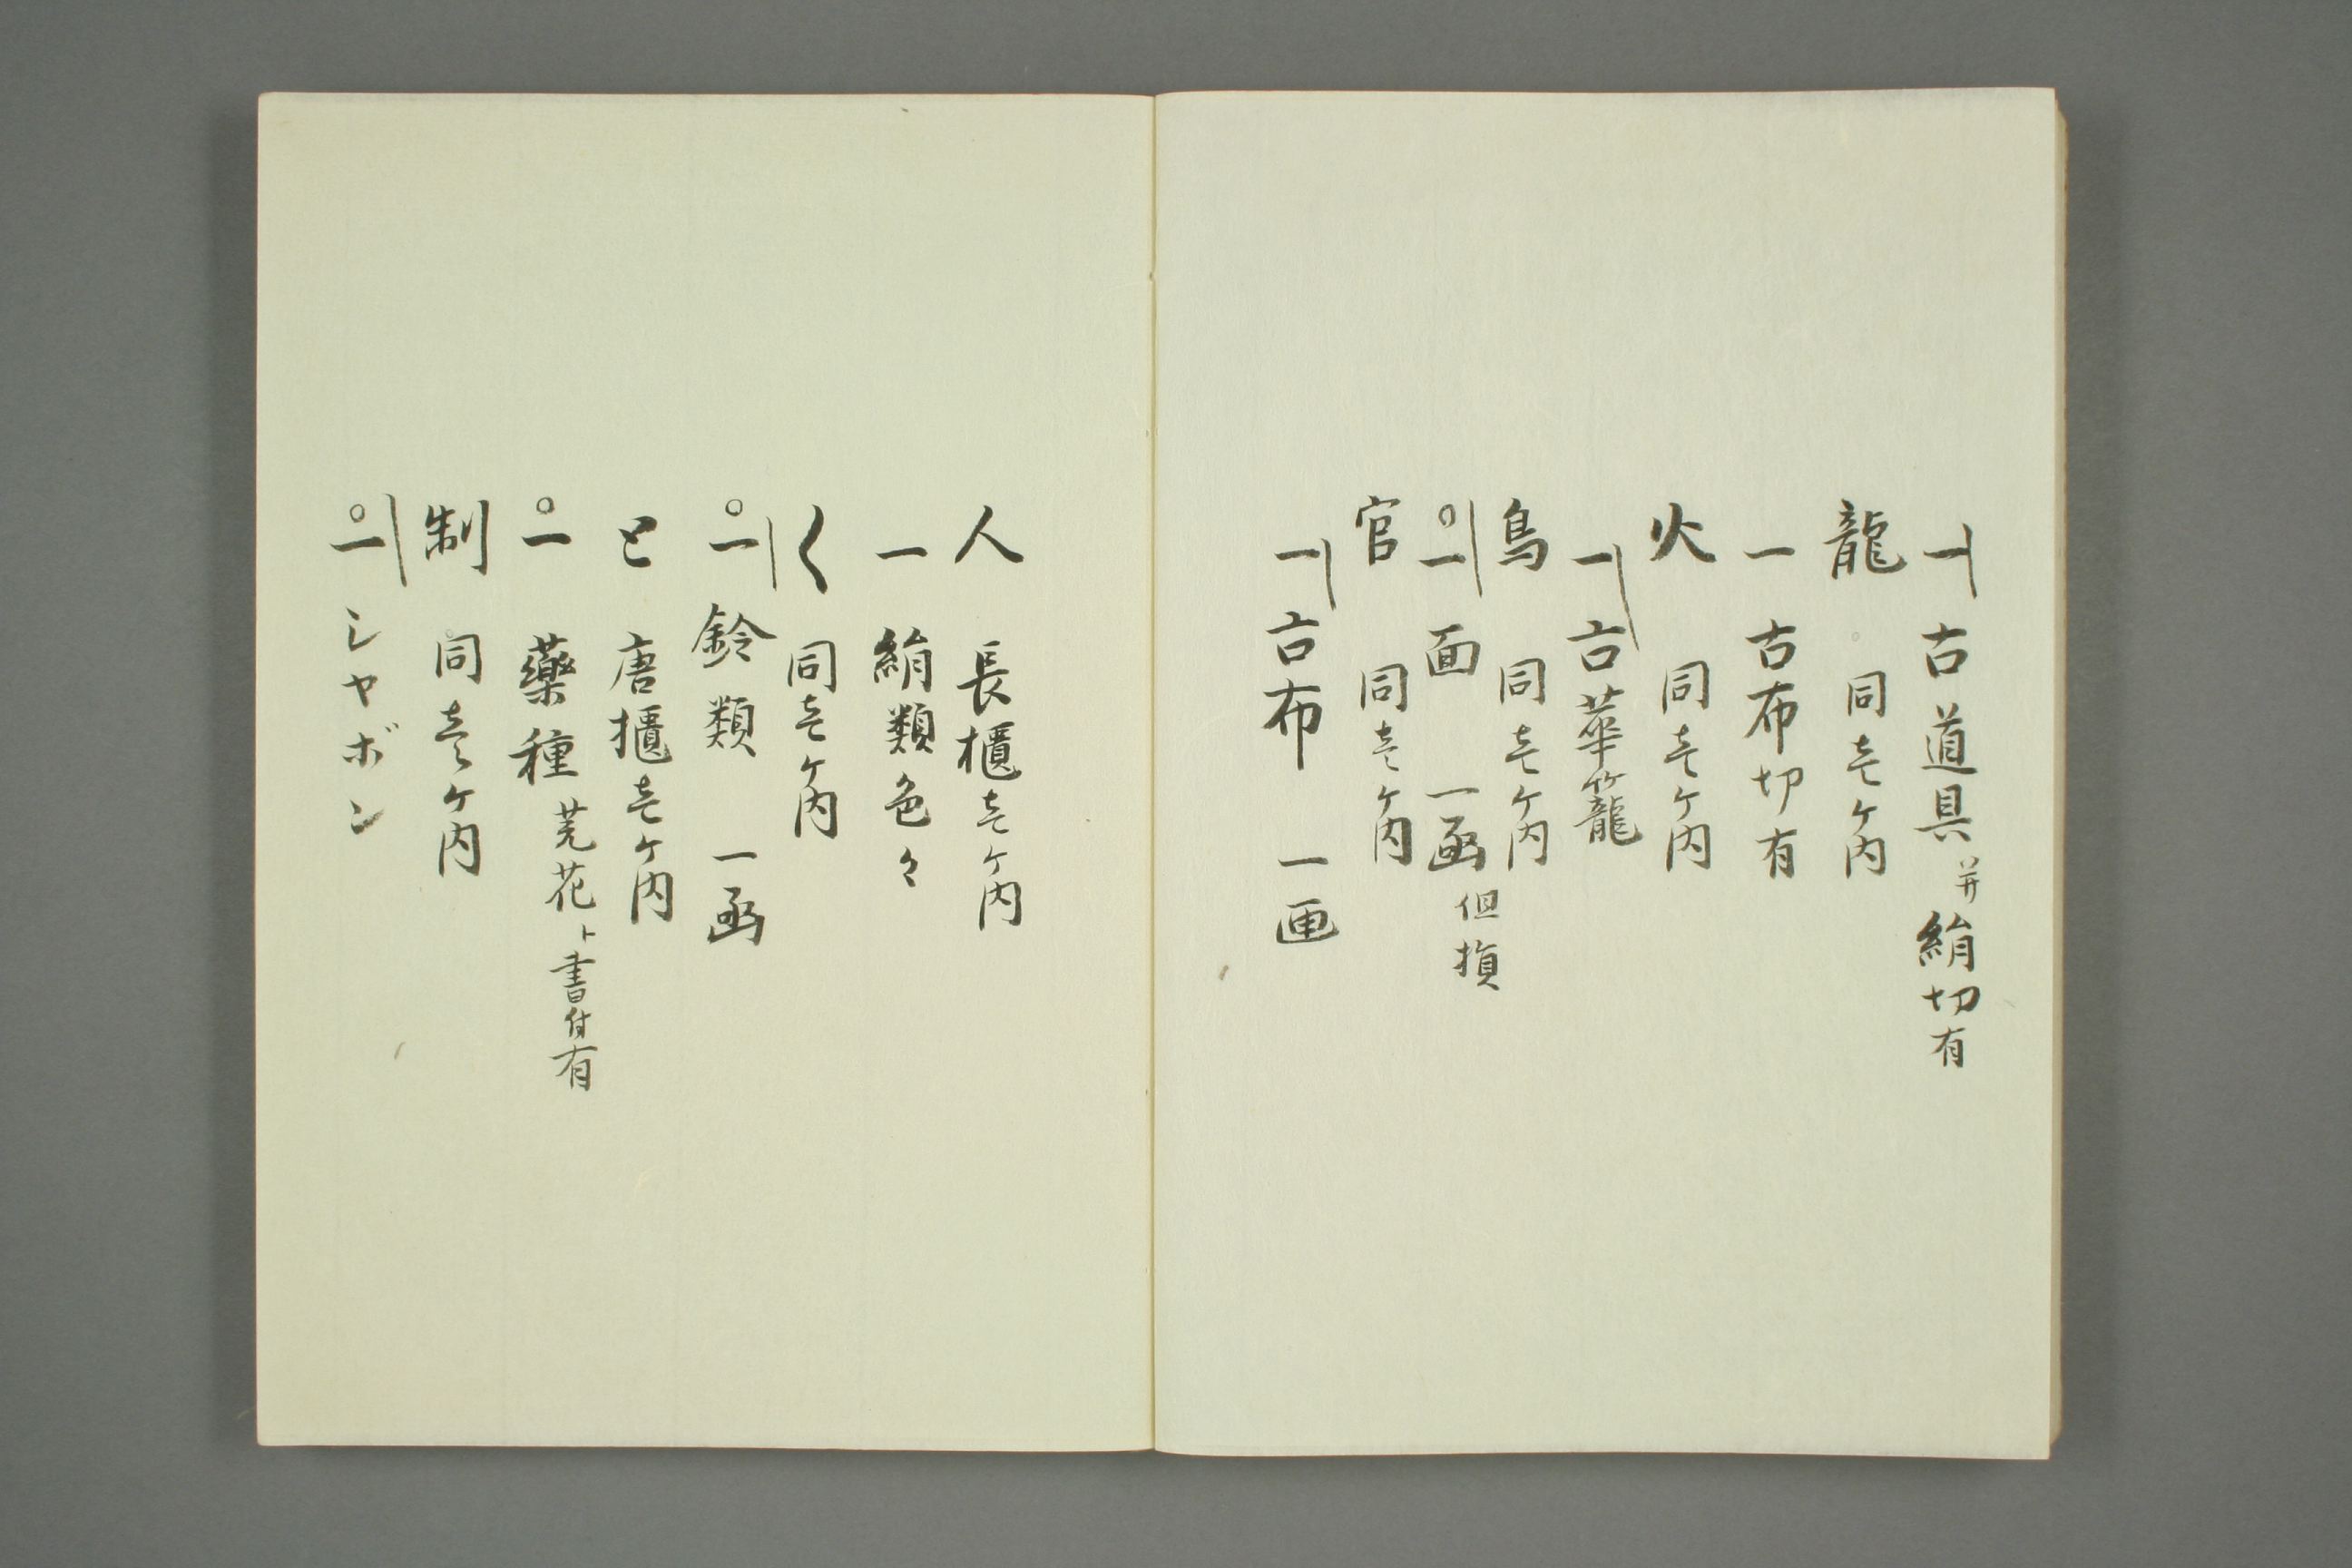 一 古道具并絹切有
龍 同壱ケ内
一 古布切有
火 同壱ケ内
一 古華籠
鳥 同壱ケ内
一 面 一函 但損
官 同壱ケ内
一 古布 一匣
人 長櫃壱ケ内
一 絹類色々
く 同壱ケ内
一 鈴類 一函
と 唐櫃壱ケ内
一 藥種 芫花ト書付有
制 同壱ケ内
一 シャボン